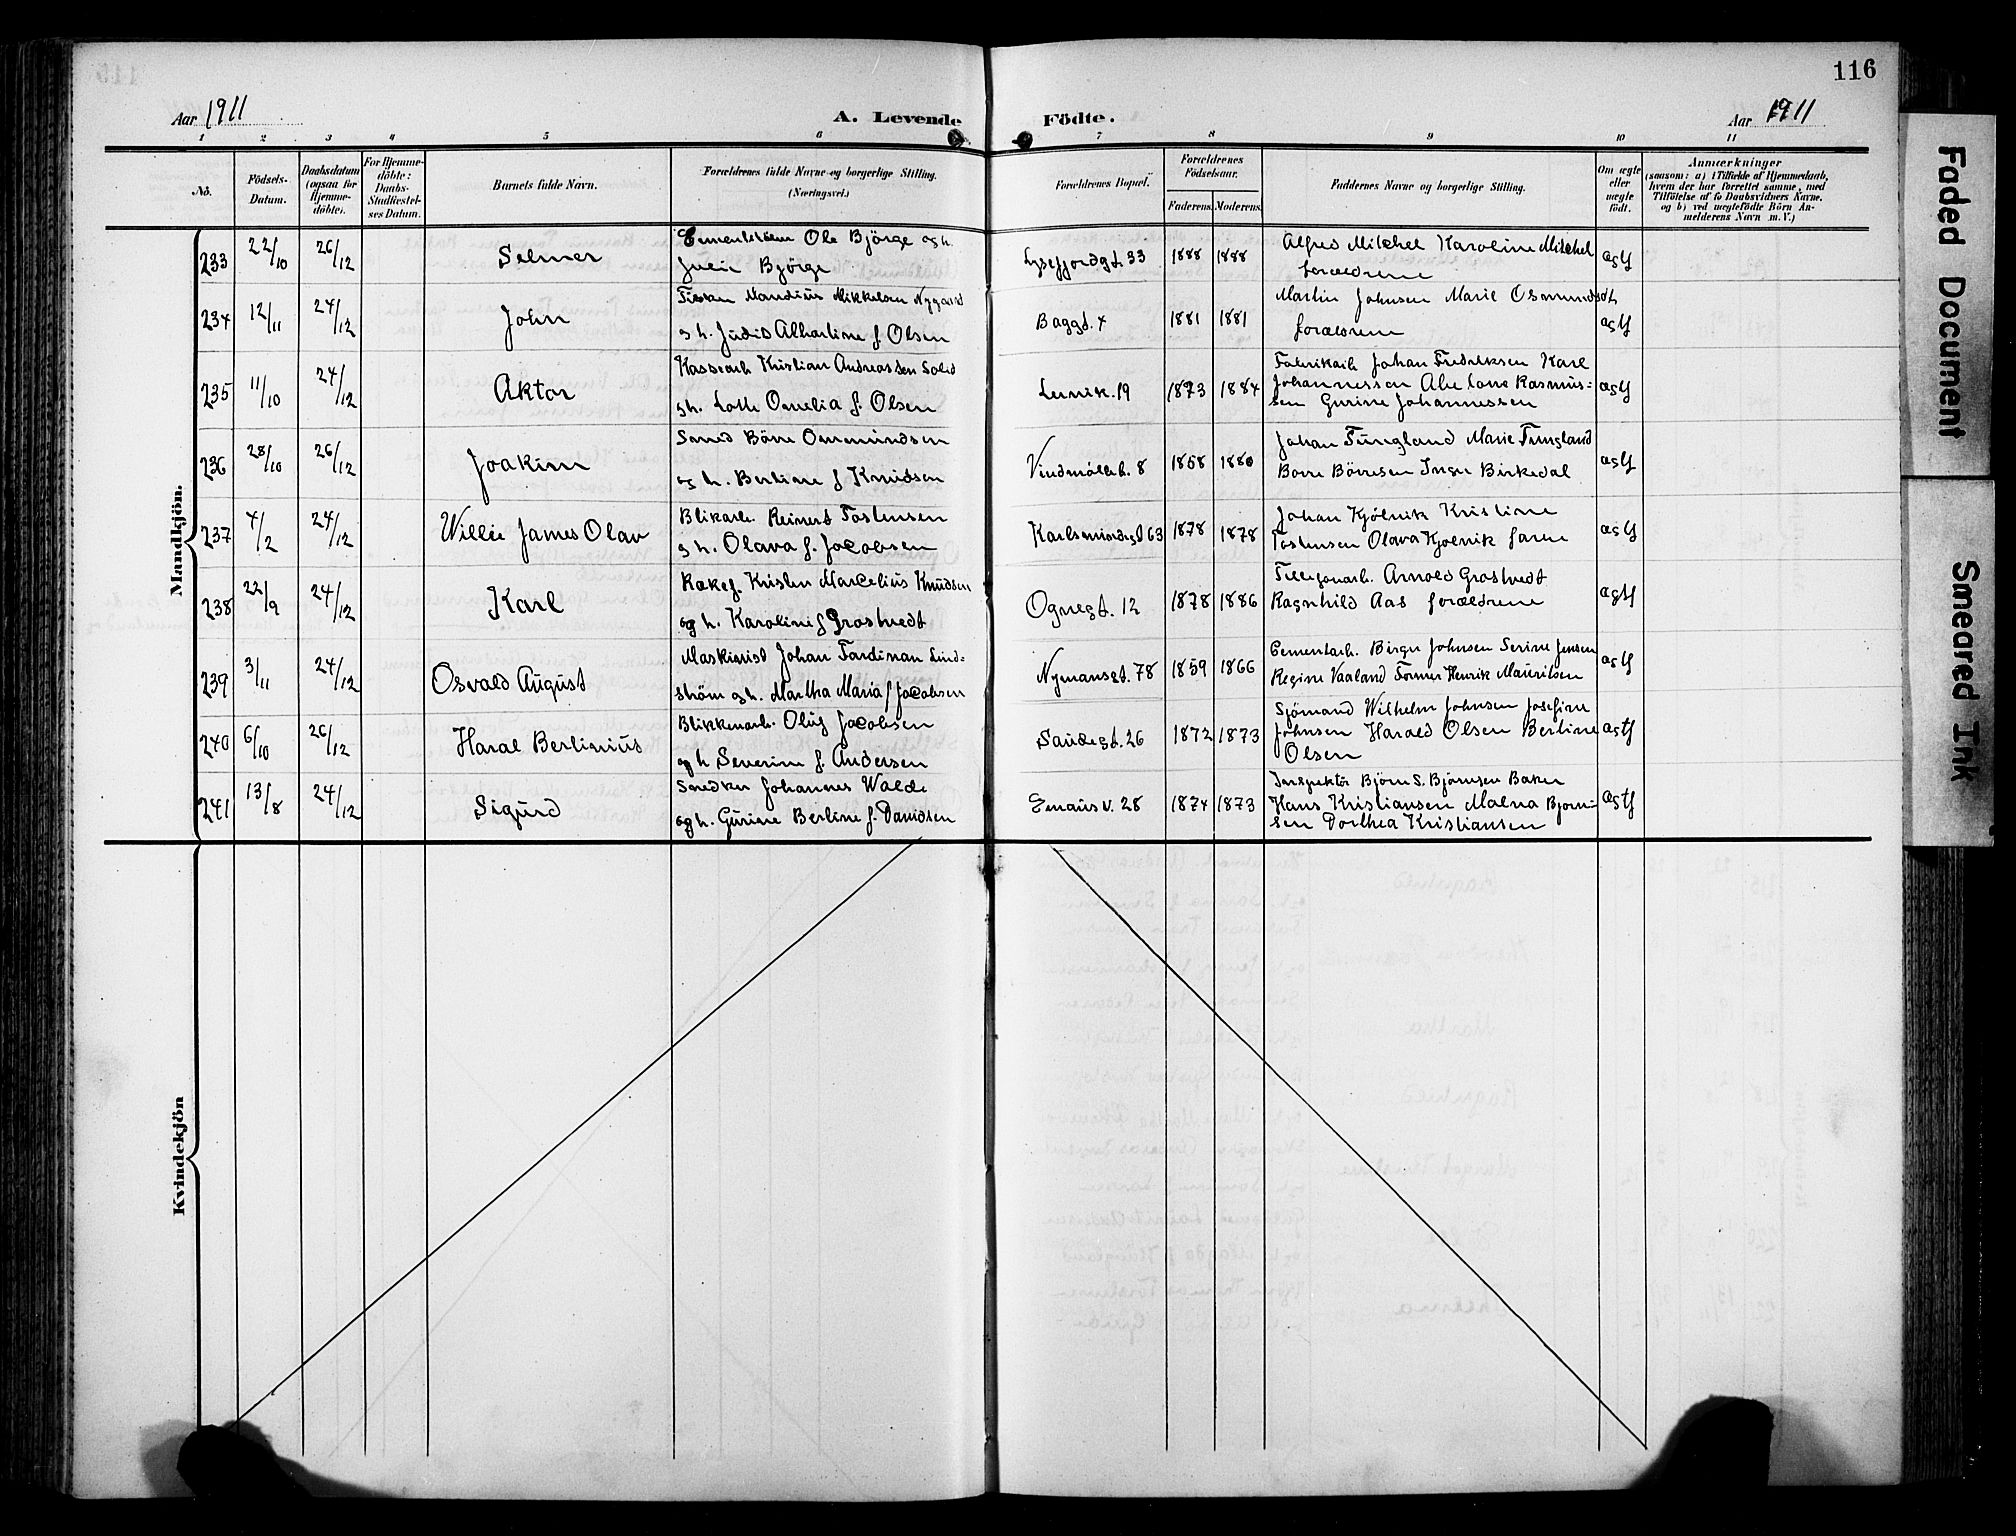 116
Aar 1911
A. Levende Födte.
Aar 1911
1 2 3 4 5 6 7 8 9 10 11
No.
Födsels-Datum.
Daabsdatum (ogsaa for Hjemme-döbte).
For Hjemme-döbte: Daabs-Stadfæstel-ses Datum.
Barnets fulde Navn.
Forældrenes fulde Navne og borgerlige Stilling. (Næringsvei.)
Forældrenes Bopæl.
Forældrenes Födselsaar.
Faderens. Moderens.
Faddernes Navne og borgerlige Stilling.
Om ægte eller uægte födt.
Anmærkninger
(saasom: a) i Tilfælde af Hjemmedaab, hvem der har forrettet samme, med Tilföielse af to Daabsvidners Navne. og b) ved uægtefödte Börn An-melderens Navn m. V.)
Mandkjön.
233 22/10 26/12 Selmer
Ole Björge og h.
Julie Björge
Lysefjordgt. 33 1888 1888
Alfred Mitchel Karoline Mitchel
forældrene
ægtf
234 12/11 24/12 John
Mandius Mikkelsen Nygaard
og h. Judid Albertine f. Olsen
Baggt. 4 1881 1881
Martin Johnsen Marie Osmundsdt.
forældrene
ægtf
235 11/10 24/12 Aktor
Kassearb. Kristian Andreassen Solid
og h. Lotte Ornelia f. Olsen
Lervik. 19 1873 1884
Fabrikarb. Johan Fredriksen Karl
Johannessen Abelone Rasmus-
sen Gurine Johannessen
ægtf
236 28/10 26/12 Joakim
Smed Börre Ommundsen
og h. Bertine f Knudsen
Vindmölleb. 8 1858 1880
Johan Tungland Marie Tungland
Borre Börresen Inger Birkedal
ægtf
237 4/2 24/12 Willie James Olav
Blikarb. Reinert Tostensen
og h. Olava f. Jacobsen
Karlsmindegt 63 1878 1878
Johan Kjölvik Kristine
Tostensen Olava Kjolvik faren
ægtf
238 22/9 24/12 Karl
Kristen Marcelius Knudsen
og h. Karoline f Grostvedt
Ognegt. 12 1878 1886
Arnold Grostvedt
Ragnhild Aas forældrene
ægtf
239 3/11 24/12 Osvald August
Maskinist Johan Fardinan Lind-
ström og h. Martha Maria f Jacobsen
Nymansgt. 78 1859 1866
Cementarb. Birger Johnsen Serine Jensen
Regine Vaaland Former Henrik Mauritsen
ægtf
240 6/10 26/12 Haral Bertinius
Blikkenarb. Oluf Jacobsen
og h Severine f. Andersen
Saudegt. 26 1872 1873
Sjömand Wilhelm Johnsen Josefine
Johnsen Harald Olsen Bertine
Olsen
ægtf
241 13/8 24/12 Sigurd
Snedker Johannes Walde
og h. Gurine Bertine f. Davidsen
Emaus v. 28 1874 1873
Inspektör Björn S. Björnsen Baker
Hans Kristiansen Malna Bjorn-
sen Dorthea Kristiansen
ægtf
Kvindekjön
Faded Document
Smeared Ink